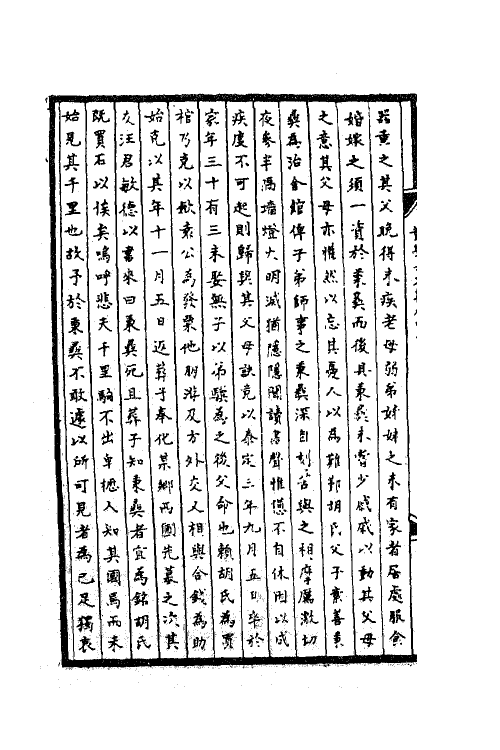 器重之其父晚得末疾老母弱弟妹妹之未有家者居處服食
婚嫁之須一資於秉彝而後具秉彝未嘗少戚戚以動其父母
之意其父母亦惟然以忘其憂人以為難鄞胡氏父子素善秉
彝為治舍館俾子弟師事之秉彝深自刻苦與之相摩厲激切
夜參半隔墻燈火明滅猶隱隱聞讀書聲惟恐不自休因以成
疾度不可起則歸與其父母訣竟以泰定三年九月五日卒於
家年三十有三未娶無子以弟騄為之後父命也賴胡氏為買
棺乃克以斂袁公為發粟他朋游及方外交又相與合錢為助
始克以其年十一月五日返葬于奉化某鄉西圃先墓之次其
友汪君敏德以書來曰秉彝死且葬子知秉彝者宜為銘胡氏
既買石以俟矣嗚呼悲夫千里駒不出皁櫪人知其國馬而未
始見其千里也故予於秉彝不敢遽以所可見者為已足獨哀